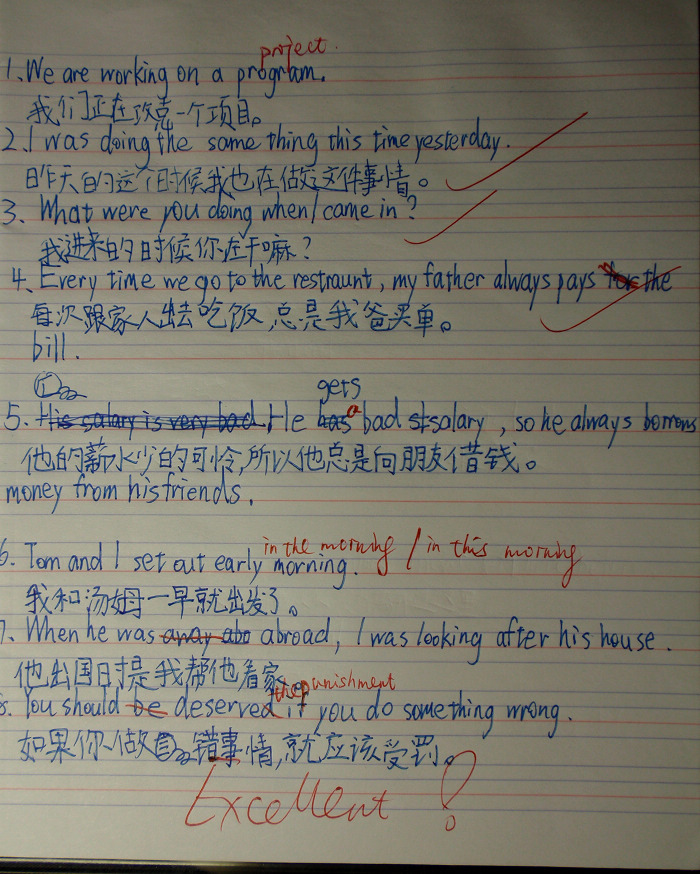 project.
1、We are working on a program.
我们正在攻克一个项目。
2、I was doing the same thing this time yesterday.
昨天的这个时候我也在做这件事情。
3、What were you doing when I came in?
我进来的时候你在干嘛?
4、Every time we go to the restraunt, my father always pays for the
每次跟家人出去吃饭,总是我爸买单。
bill.
gets
5、His salary is very bad. He has a bad salary, so he always borrows
他的薪水少的可怜,所以他总是向朋友借钱。
money from his friends.
in the morning / in this morning
6. Tom and I set out early morning.
我和汤姆一早就出发了。
7、When he was away abo abroad, I was looking after his house.
他出国时是我帮他看家
the punishment
8. You should be deserved if you do something wrong.
如果你做错事情,就应该受罚。
Excellent!